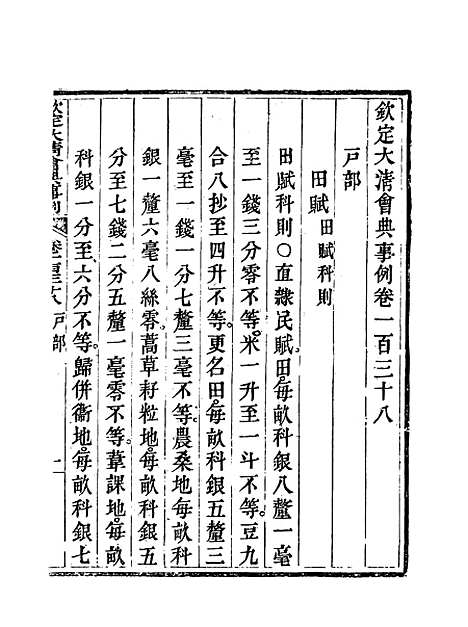 欽定大清會典事例卷一百三十八
戸部
田賦田賦科則
田賦科則〇直隸民賦田。每畝科銀八釐一毫
至一錢三分零不等。米一升至一斗不等。豆九
合八抄至四升不等。更名田。每畝科銀五釐三
毫至一錢一分七釐三毫不等。農桑地。每畝科
銀一釐六毫八絲零。蒿草籽粒地。每畝科銀五
分至七錢二分五釐一毫零不等。葦課地。每畝
科銀一分至六分不等。歸併衞地。每畝科銀七
欽定大清會典事例 卷一百三十八 戸部 一